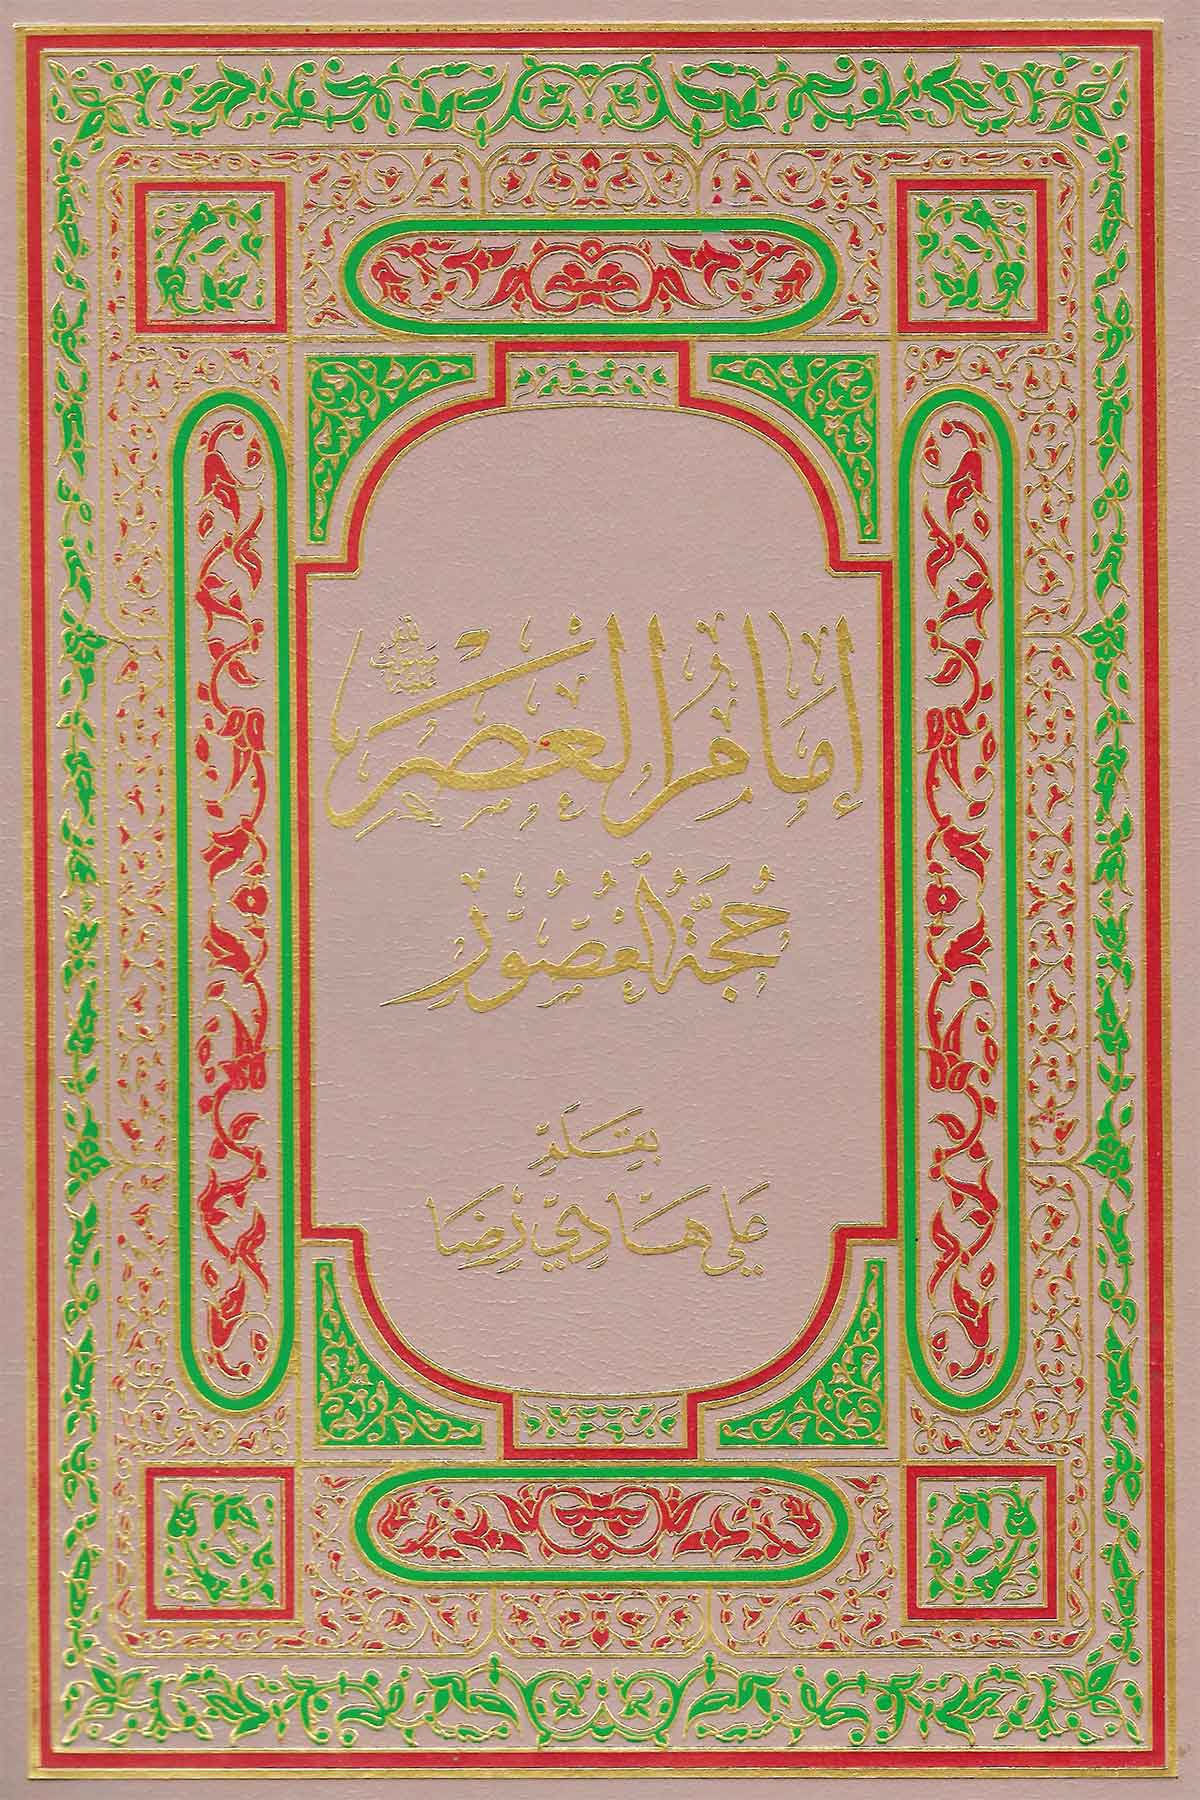 إمام العصر صلوات الله عليه
حجة العصور
بقلم
علي هادي رضا